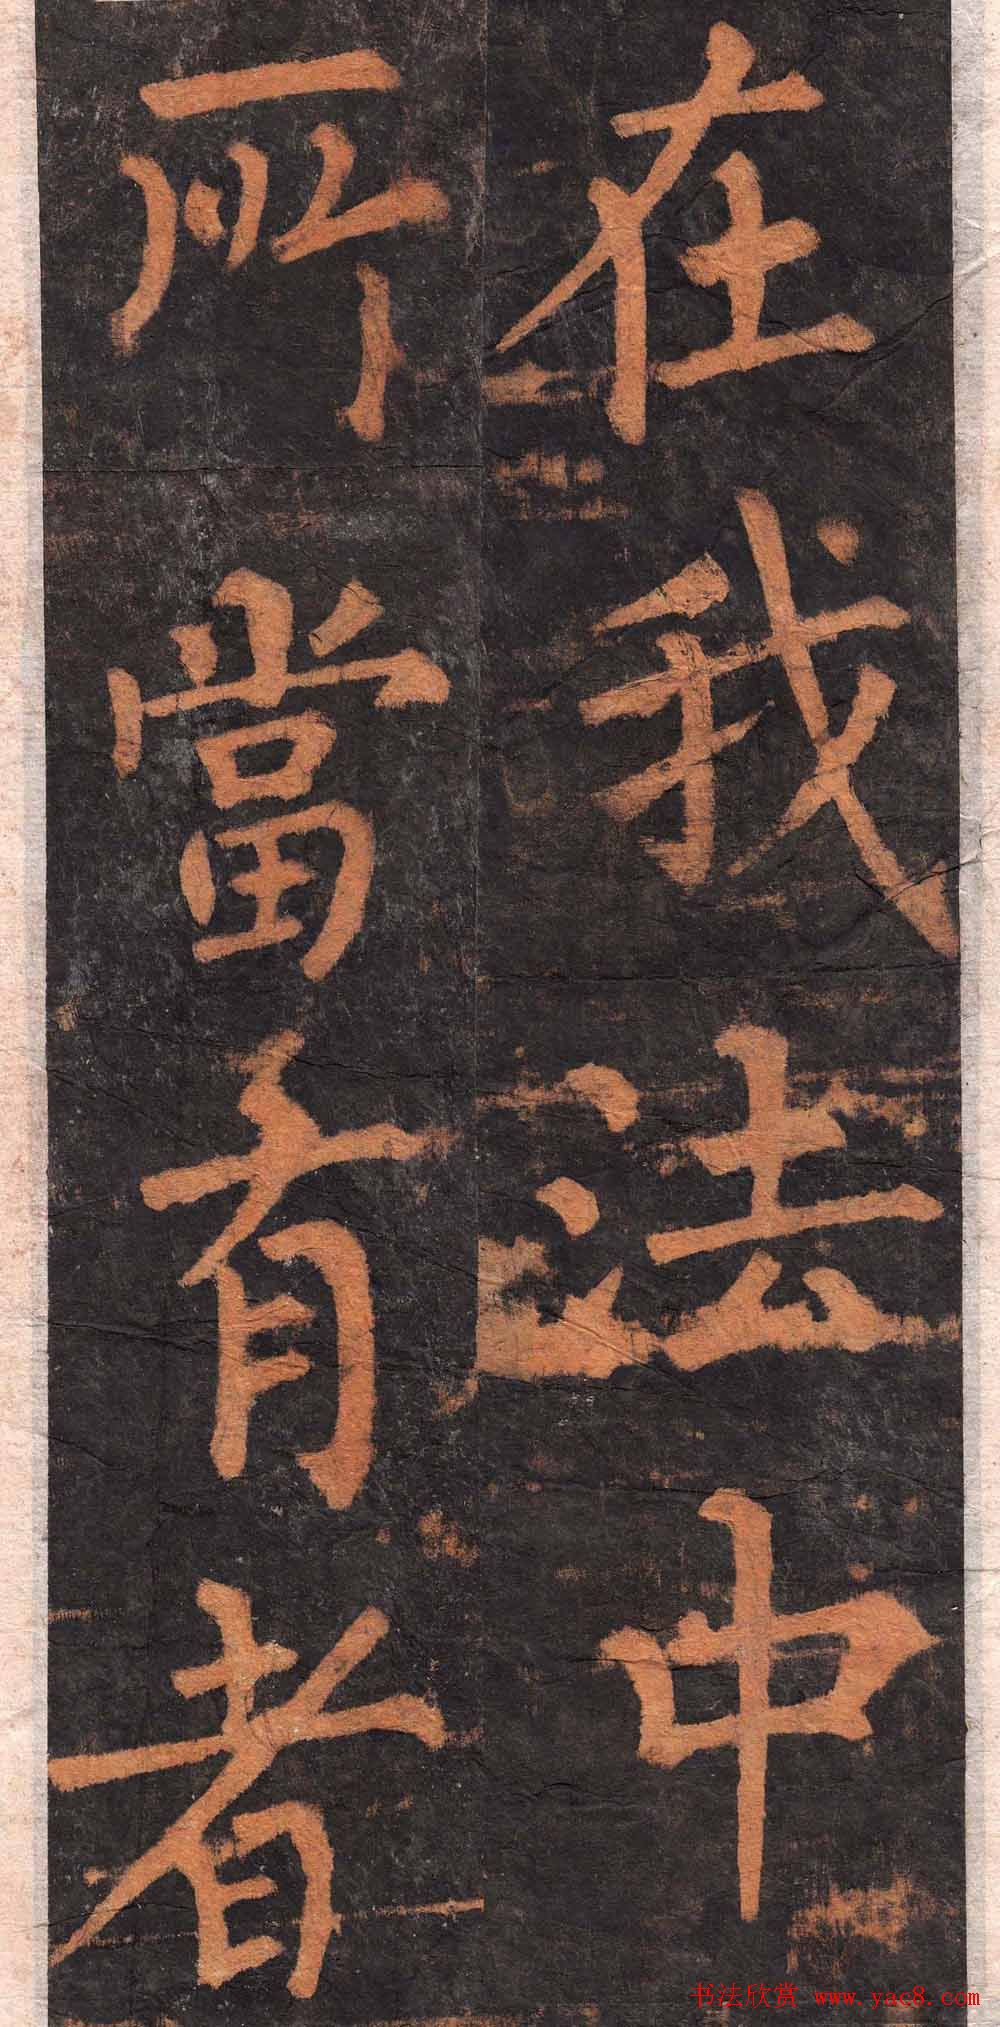 在我法中
所當有者
书法欣赏 www.yac8.com